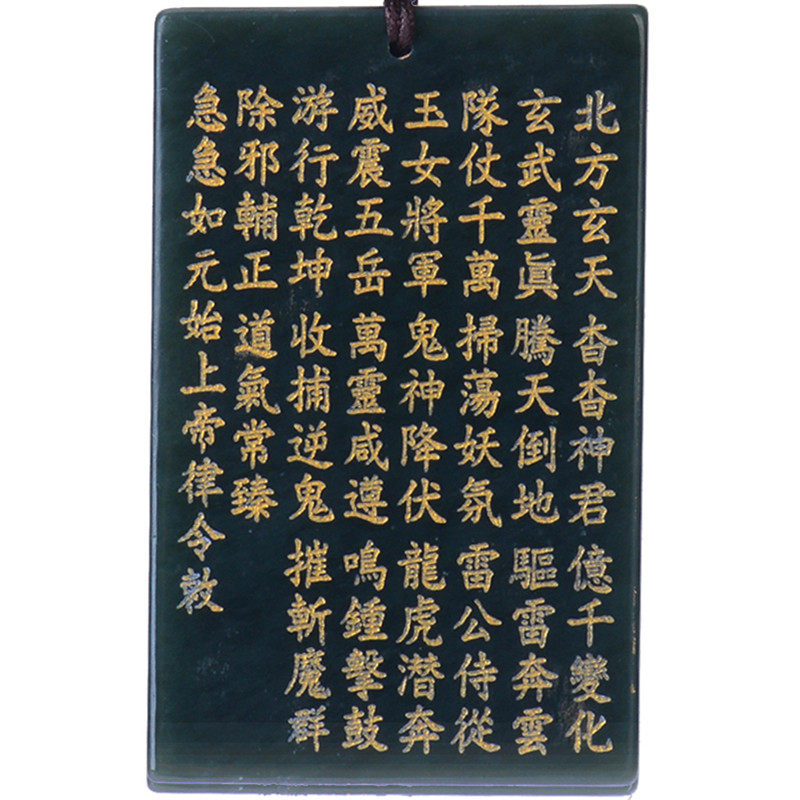 北方玄天杳杳神君億千變化
玄武靈眞騰天倒地驅雷奔雲
隊仗千萬掃蕩妖氛雷公侍從
玉女將軍鬼神降伏龍虎潜奔
威震五岳萬靈咸遵鳴鍾擊鼓
游行乾坤收捕逆鬼摧斬魔群
除邪輔正道氣常臻
急急如元始上帝律令敕